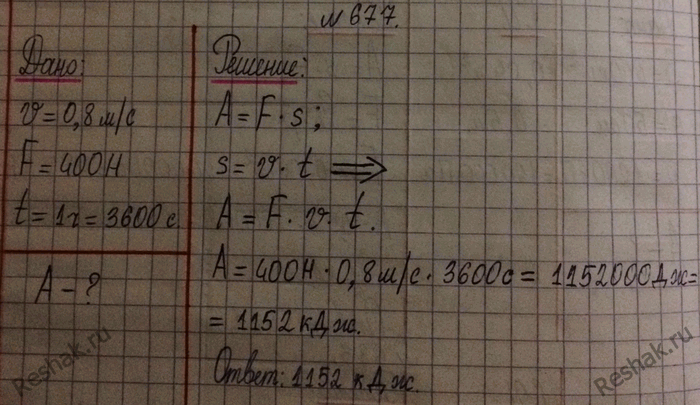 № 677.
Дано:
v = 0,8 м/с
F = 400Н
t = 1ч = 3600 с
А - ?
Решение:
A = F · s ;
s = v · t ⟹
A = F · v · t.
A = 400Н · 0,8 м/с · 3600с = 1152000Дж =
= 1152 кДж.
Ответ: 1152 кДж.
Reshak.ru
Reshak.ru